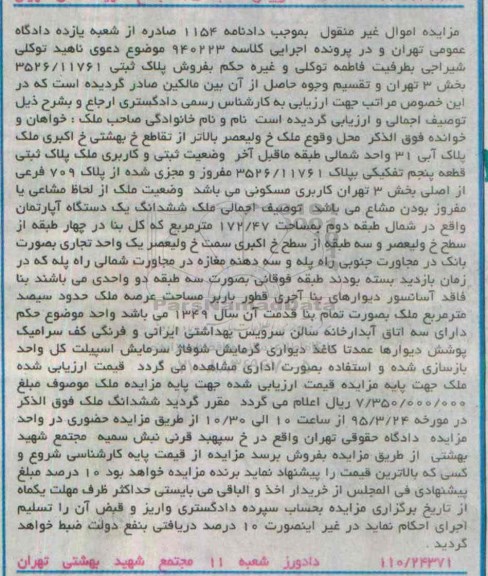 مزایده اموال غیر منقول بموجب دادنامه ۱۱۵۴ صادره از شعبه یازده دادگاه
عمومی تهران و در پرونده اجرایی کلاسه ۹۴۰۲۲۳ موضوع دعوی ناهید توکلی
شیراجی بطرفیت فاطمه توکلی و غیره حکم بفروش پلاک ثبتی ۳۵۲۶/۱۱۷۶۱
بخش ۳ تهران و تقسیم وجوه حاصل از آن بین مالکین صادر گردیده است که در
این خصوص مراتب جهت ارزیابی به کارشناس رسمی دادگستری ارجاع و بشرح ذیل
توصیف اجمالی و ارزیابی گردیده است نام و نام خانوادگی صاحب ملک : خواهان و
خوانده فوق الذکر محل وقوع ملک خ ولیعصر بالاتر از تقاطع خ بهشتی خ اکبری ملک
پلاک آبی ۳۱ واحد شمالی طبقه ماقبل آخر وضعیت ثبتی و کاربری ملک پلاک ثبتی
قطعه پنجم تفکیکی بپلاک ۳۵۲۶/۱۱۷۶۱ مفروز و مجزی شده از پلاک ۷۰۹ فرعی
از اصلی بخش ۳ تهران کاربری مسکونی می باشد وضعیت ملک از لحاظ مشاعی یا
مفروز بودن مشاع می باشد توصیف اجمالی ملک ششدانگ یک دستگاه آپارتمان
واقع در شمال طبقه دوم بمساحت ۱۷۲/۴۷ مترمربع که کل بنا در چهار طبقه از
سطح خ ولیعصر و سه طبقه از سطح خ اکبری سمت خ ولیعصر یک واحد تجاری بصورت
بانک در مجاورت جنوبی راه پله و سه دهنه مغازه در مجاورت شمالی راه پله که در
زمان بازدید بسته بودند طبقه فوقانی بصورت سه طبقه دو واحدی می باشند بنا
فاقد آسانسور دیوارهای بنا آجری قطور باربر مساحت عرصه ملک حدود سیصد
مترمربع ملک بصورت تمام بنا قدمت آن سال ۱۳۴۹ می باشد واحد موضوع حکم
دارای سه اتاق آبدارخانه سالن سرویس بهداشتی ایرانی و فرنگی کف سرامیک
پوشش دیوارها عمدتا کاغذ دیواری گرمایش شوفاژ سرمایش اسپیلت کل واحد
بازسازی شده و استفاده بصورت اداری مشاهده می گردد قیمت ارزیابی شده
ملک جهت پایه مزایده قیمت ارزیابی شده جهت پایه مزایده ملک موصوف مبلغ
۷/۳۵۰/۰۰۰/۰۰۰ ریال اعلام می گردد مقرر گردید ششدانگ ملک فوق الذکر
در مورخه ۹۵/۳/۲۴ از ساعت ۱۰ الی ۱۰/۳۰ از طریق مزایده حضوری در واحد
مزایده دادگاه حقوقی تهران واقع در خ سپهبد قرنی نبش سمیه مجتمع شهید
بهشتی از طریق مزایده بفروش برسد مزایده از قیمت پایه کارشناسی شروع و
کسی که بالاترین قیمت را پیشنهاد نماید برنده مزایده خواهد بود ۱۰ درصد مبلغ
پیشنهادی فی المجلس از خریدار اخذ و الباقی می بایستی حداکثر ظرف مهلت یکماه
از تاریخ برگزاری مزایده بحساب سپرده دادگستری واریز و قبض آن را تسلیم
اجرای احکام نماید در غیر اینصورت ۱۰ درصد دریافتی بنفع دولت ضبط خواهد
گردید
۱۱۰/۲۴۳۷۱ دادورز شعبه ۱۱ مجتمع شهید بهشتی تهران